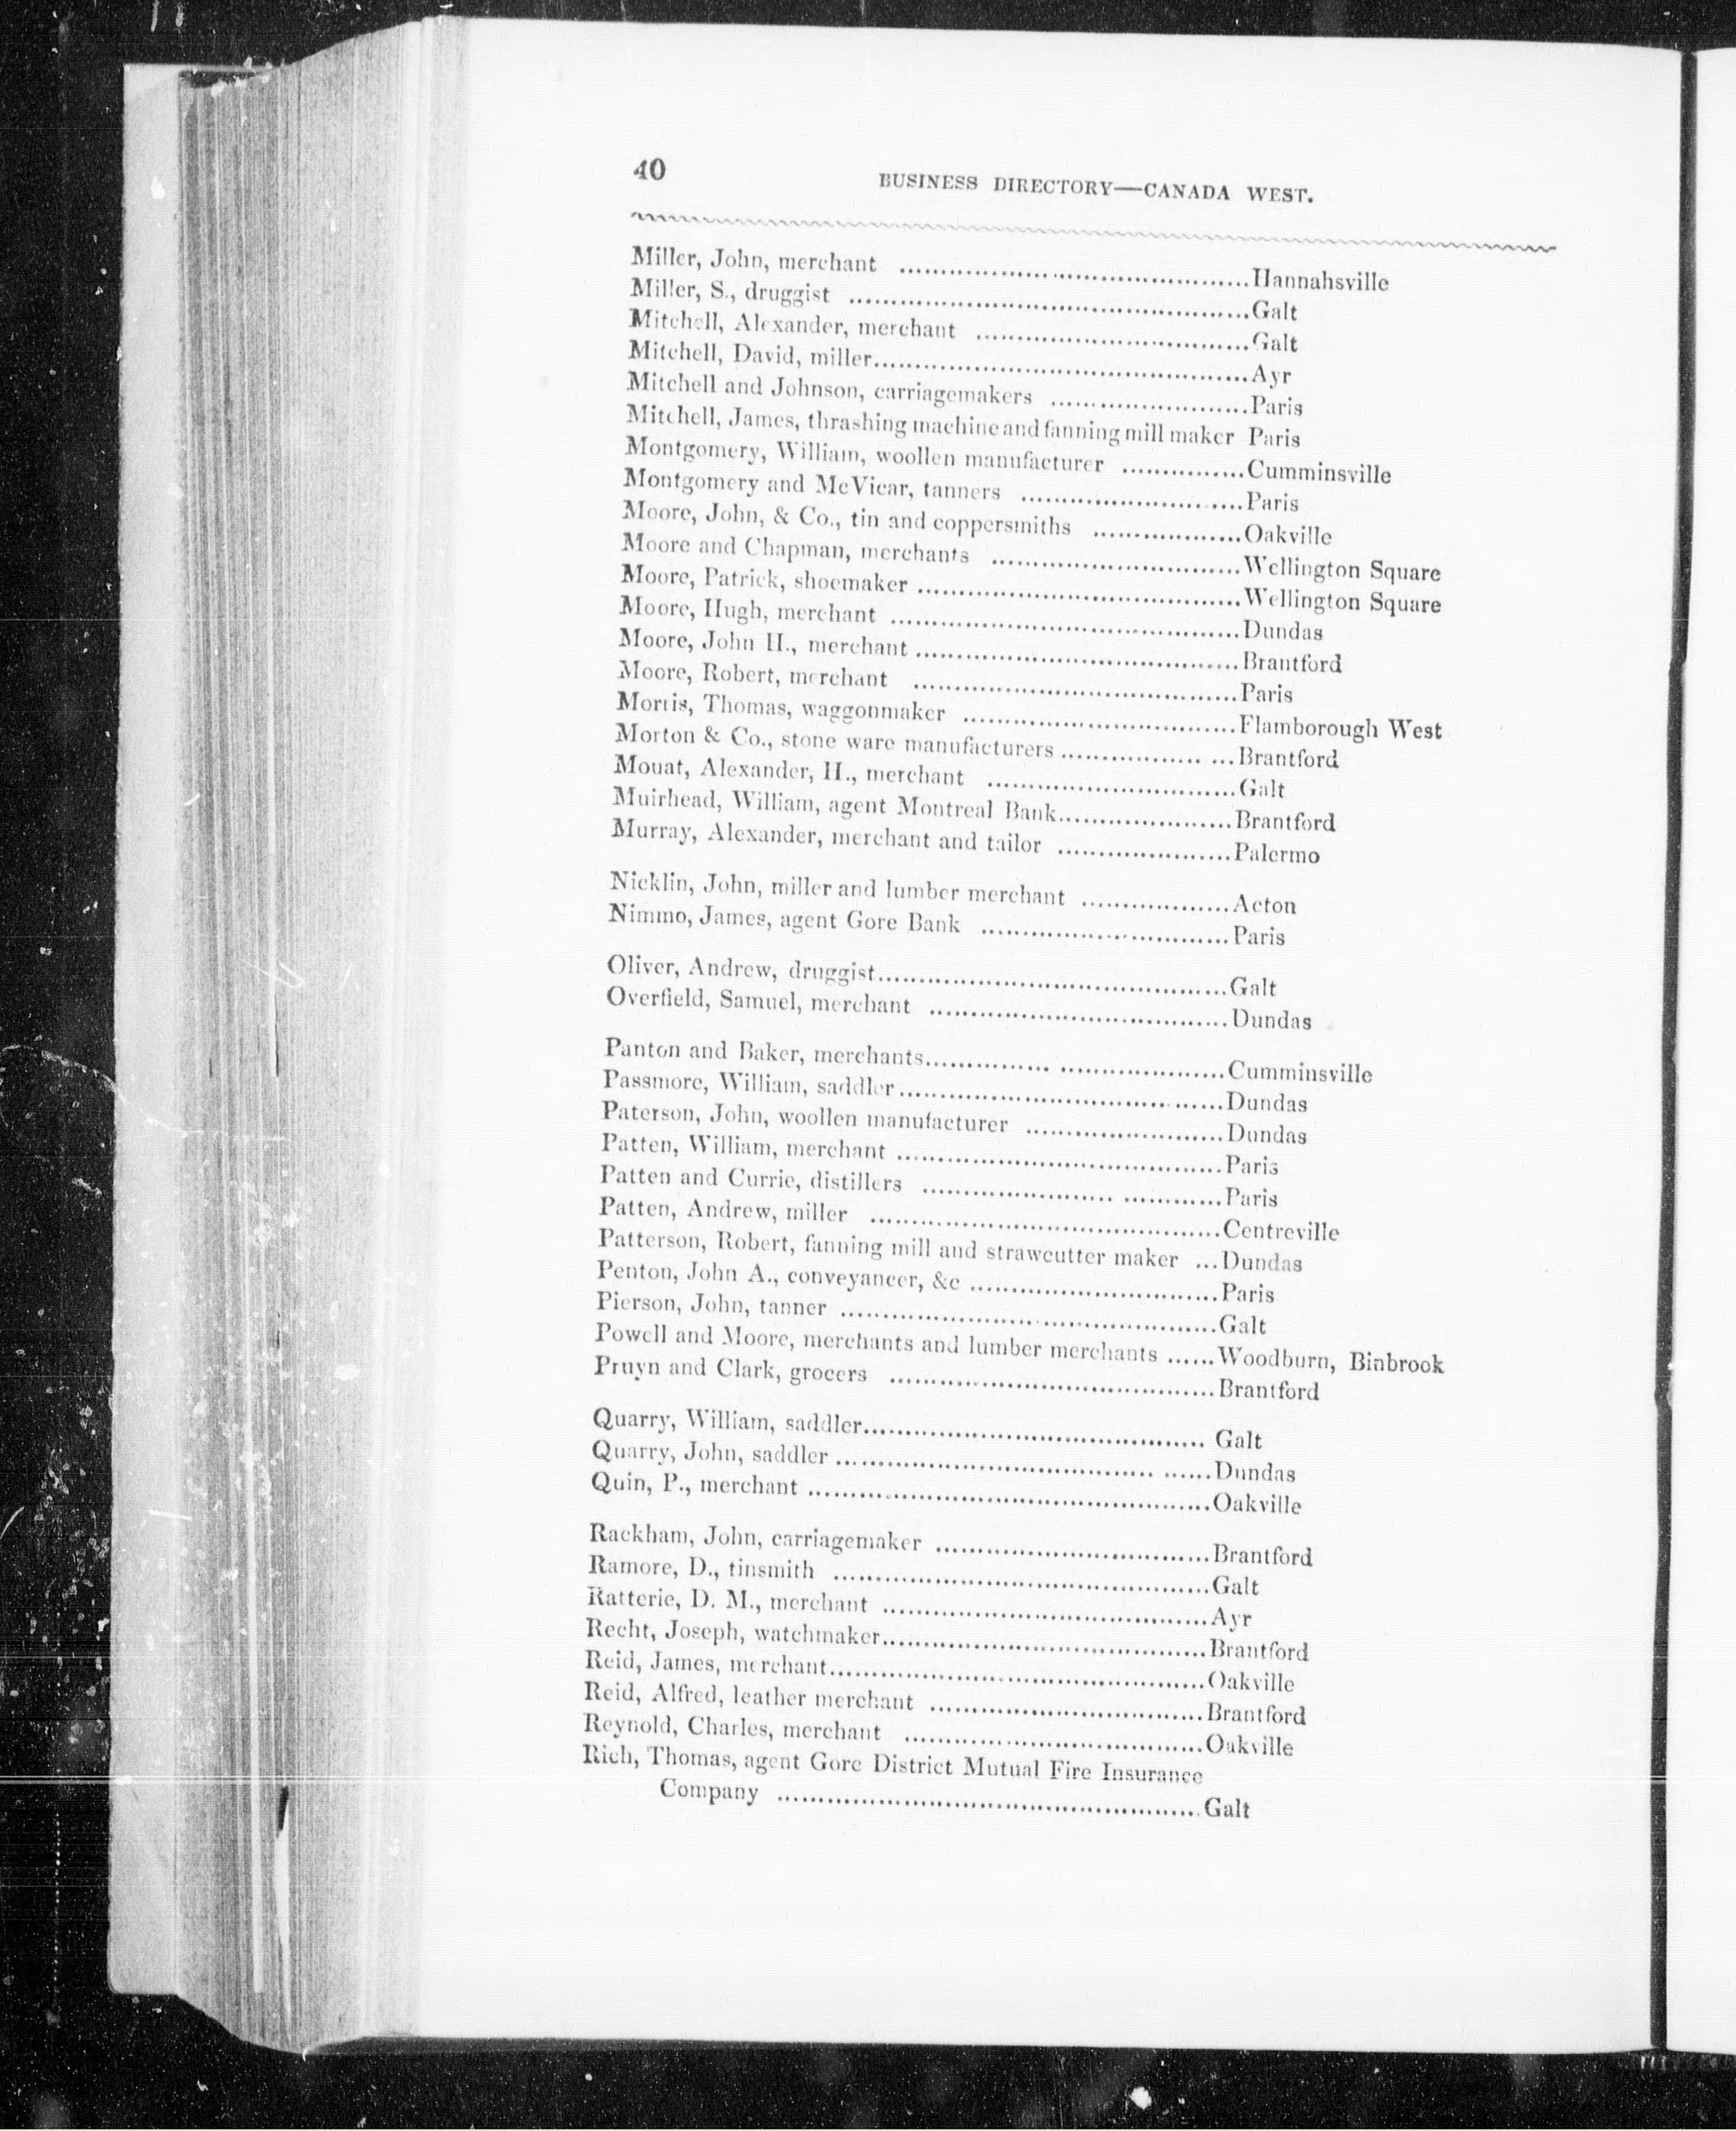 40 BUSINESS DIRECTORY—CANADA WEST.
Miller, John, merchant ........................................Hannahsville
Miller, S., druggist ................................................Galt
Mitchell, Alexander, merchant .................................Galt
Mitchell, David, miller.............................................Ayr
Mitchell and Johnson, carriagemakers ........................Paris
Mitchell, James, thrashing machine and fanning mill maker Paris
Montgomery, William, woollen manufacturer ...............Cumminsville
Montgomery and McVicar, tanners ...........................Paris
Moore, John, & Co., tin and coppersmiths ..................Oakville
Moore and Chapman, merchants ..............................Wellington Square
Moore, Patrick, shoemaker .......................................Wellington Square
Moore, Hugh, merchant ..........................................Dundas
Moore, John H., merchant .......................................Brantford
Moore, Robert, merchant .......................................Paris
Morris, Thomas, waggonmaker .................................Flamborough West
Morton & Co., stone ware manufacturers ................. ...Brantford
Mouat, Alexander, H., merchant ..............................Galt
Muirhead, William, agent Montreal Bank.....................Brantford
Murray, Alexander, merchant and tailor .....................Palermo
Nicklin, John, miller and lumber merchant ..................Acton
Nimmo, James, agent Gore Bank ..............................Paris
Oliver, Andrew, druggist..........................................Galt
Overfield, Samuel, merchant ....................................Dundas
Panton and Baker, merchants............... ....................Cumminsville
Passmore, William, saddler.......................................Dundas
Paterson, John, woollen manufacturer ........................Dundas
Patten, William, merchant .......................................Paris
Patten and Currie, distillers ....................... ............Paris
Patten, Andrew, miller ..........................................Centreville
Patterson, Robert, fanning mill and strawcutter maker ...Dundas
Penton, John A., conveyancer, &c ..............................Paris
Pierson, John, tanner .............................................Galt
Powell and Moore, merchants and lumber merchants ......Woodburn, Binbrook
Pruyn and Clark, grocers .......................................Brantford
Quarry, William, saddler......................................... Galt
Quarry, John, saddler ....................................... ......Dundas
Quin, P., merchant ................................................Oakville
Rackham, John, carriagemaker .................................Brantford
Ramore, D., tinsmith .............................................Galt
Ratterie, D. M., merchant .......................................Ayr
Recht, Joseph, watchmaker.......................................Brantford
Reid, James, merchant.............................................Oakville
Reid, Alfred, leather merchant .................................Brantford
Reynold, Charles, merchant ....................................Oakville
Rich, Thomas, agent Gore District Mutual Fire Insurance
Company ..................................................Galt